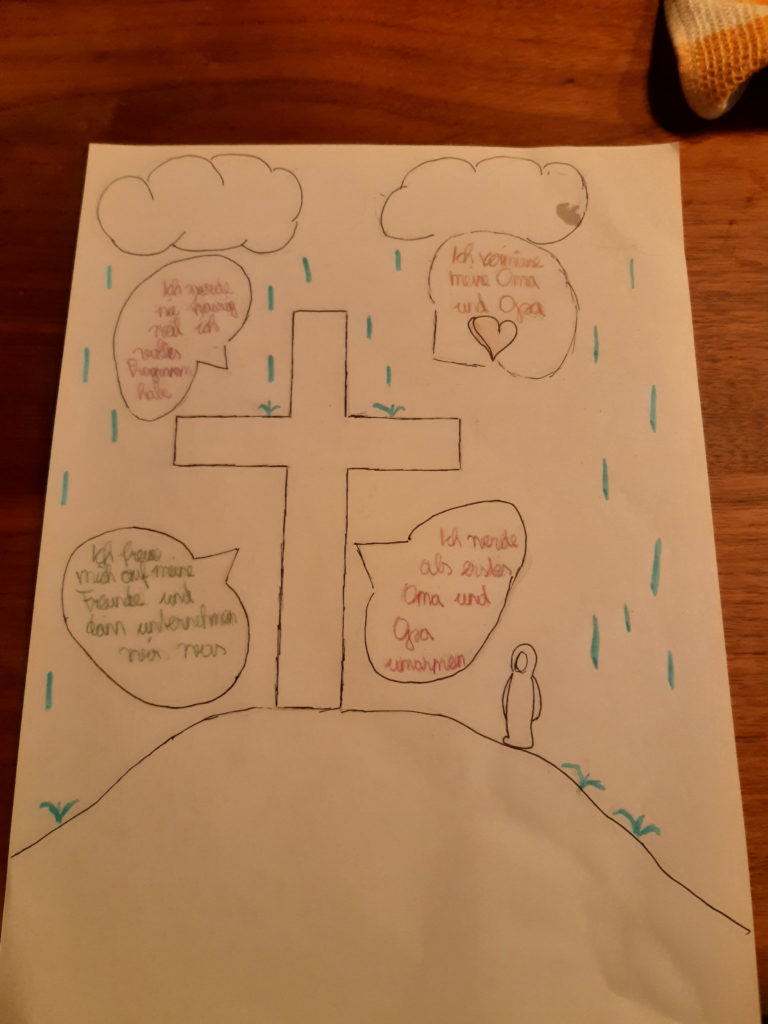 Ich werde
nie traurig
weil ich
volles
Programm
habe
Ich vermisse
meine Oma
und Opa
Ich freue
mich auf meine
Freunde und
dann unternehmen
wir was
Ich werde
als erstes
Oma und
Opa
umarmen